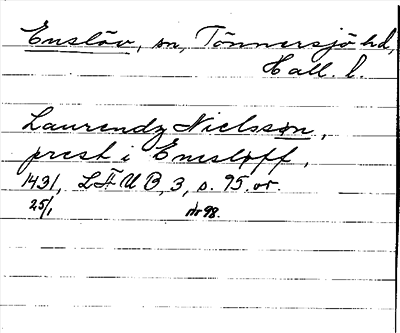 Enslöv, sn, Tönnersjö hd,
Hall. l.
Laurendz Nielsson,
prest i Emsløff,
1431, LÆUB, 3, s. 95. or.
25/1 nr 98.